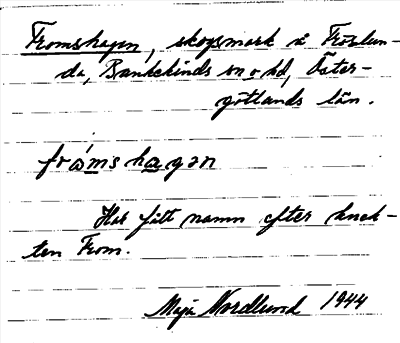 Fromshagen, skogsmark å Fröslun-
da, Bankekinds sn o hd, Öster-
götlands län.
fråmshagən
Har fått namn efter knek-
ten From.
Maja Nordlund 1944